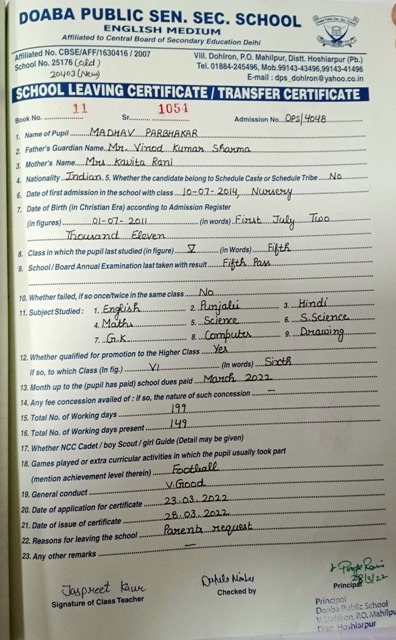 DOABA PUBLIC SEN. SEC. SCHOOL
ENGLISH MEDIUM
Affiliated to Central Board of Secondary Education Delhi
Affiliated No. CBSE/AFF/1630416 / 2007
Vill. Dohlron, P.O. Mahilpur, Distt. Hoshiarpur (Pb.)
School No. 25176 (old)
Tel. 01884-245496, Mob.99143-43496,99143-41496
20403 (New)
E-mail : dps_dohlron@yahoo.co.in
SCHOOL LEAVING CERTIFICATE / TRANSFER CERTIFICATE
Book No. 11 Sr. 1054 Admission No. DPS/4048
1. Name of Pupil MADHAV PARBHAKAR
2. Father's Guardian Name Mr. Vinod Kumar Sharma
3. Mother's Name Mrs Kavita Rani
4. Nationality Indian 5. Whether the candidate belong to Schedule Caste or Schedule Tribe No
6. Date of first admission in the school with class 10-07-2014, Nursery
7. Date of Birth (in Christian Era) according to Admission Register
(in figures) 01-07-2011 (in words) First July Two
Thousand Eleven
8. Class in which the pupil last studied (in figure) V (in Words) Fifth
9. School / Board Annual Examination last taken with result Fifth Pass
10. Whether failed, if so once/twice in the same class No
11. Subject Studied : 1. English 2. Punjabi 3. Hindi
4. Maths 5. Science 6. S.Science
7. G.K 8. Computer 9. Drawing
12. Whether qualified for promotion to the Higher Class Yes
if so, to which Class (In fig.) VI (In words) Sixth
13. Month up to the (pupil has paid) school dues paid March 2022
14. Any fee concession availed of : if so, the nature of such concession —
15. Total No. of Working days 199
16. Total No. of Working days present 149
17. Whether NCC Cadet / boy Scout / girl Guide (Detail may be given)
18. Games played or extra curricular activities in which the pupil usually took part
(mention achievement level therein) Football
19. General conduct V.Good
20. Date of application for certificate 23.03.2022
21. Date of issue of certificate 28.03.2022
22. Reasons for leaving the school Parents request
23. Any other remarks —
Jaspreet Kaur
Signature of Class Teacher
Checked by
28/3/22
Principal
Principal
Doaba Public School
V. Dohlron, P.O. Mahilpur
Distt. Hoshiarpur